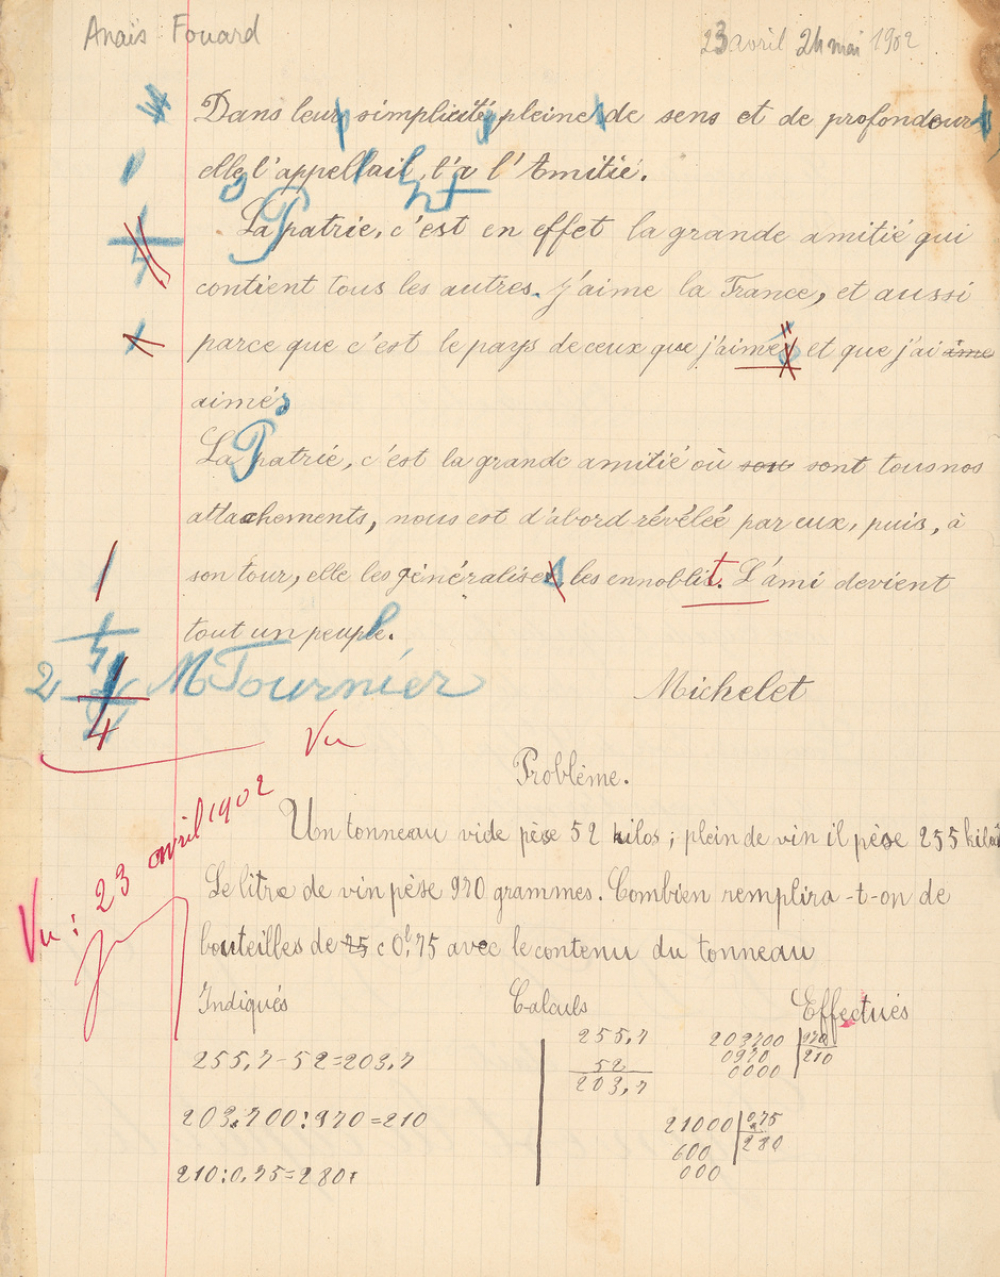 Anaïs Fouard
23 avril 24 mai 1902
Dans leur simplicité, pleine de sens et de profondeur,
elle l'appellait, l'a l'Amitié.
La Patrie, c'est en effet la grande amitié qui
contient tous les autres. J'aime la France, et aussi
parce que c'est le pays de ceux que j'aime et que j'ai aime
aimés
La Patrie, c'est la grande amitié où son sont tous nos
attachements, nous est d'abord révélée par eux, puis, à
son tour, elle les généralise, les ennoblit. L'ami devient
tout un peuple.
2 M Tournier
4
Michelet
Vu
Problème.
Vu: 23 avril 1902
Un tonneau vide pèse 52 kilos; plein de vin il pèse 255 kilos
Le litre de vin pèse 970 grammes. Combien remplira-t-on de
bouteilles de 75 c 0l,75 avec le contenu du tonneau
Indiqués Calculs Effectués
255,7-52=203,7
203.700:970=210
210:0,75=280
255,7
52
203,7
203700 970
0970 210
0000
21000 0,75
600 280
000